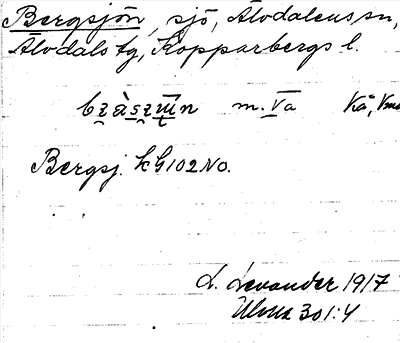 Bergsjön, sjö, Älvdalens sn,
Älvdals tg, Kopparbergs l.
m. Va Kå,
Bergsj. k G 102 NO.
L. Levander 1917
301:4